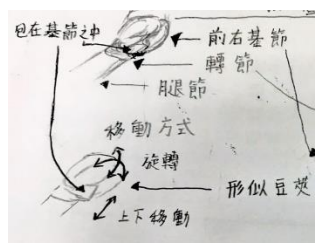 包在基節之中
前右基節
轉節
腿節
移動方式
旋轉
形似豆莢
上下移動